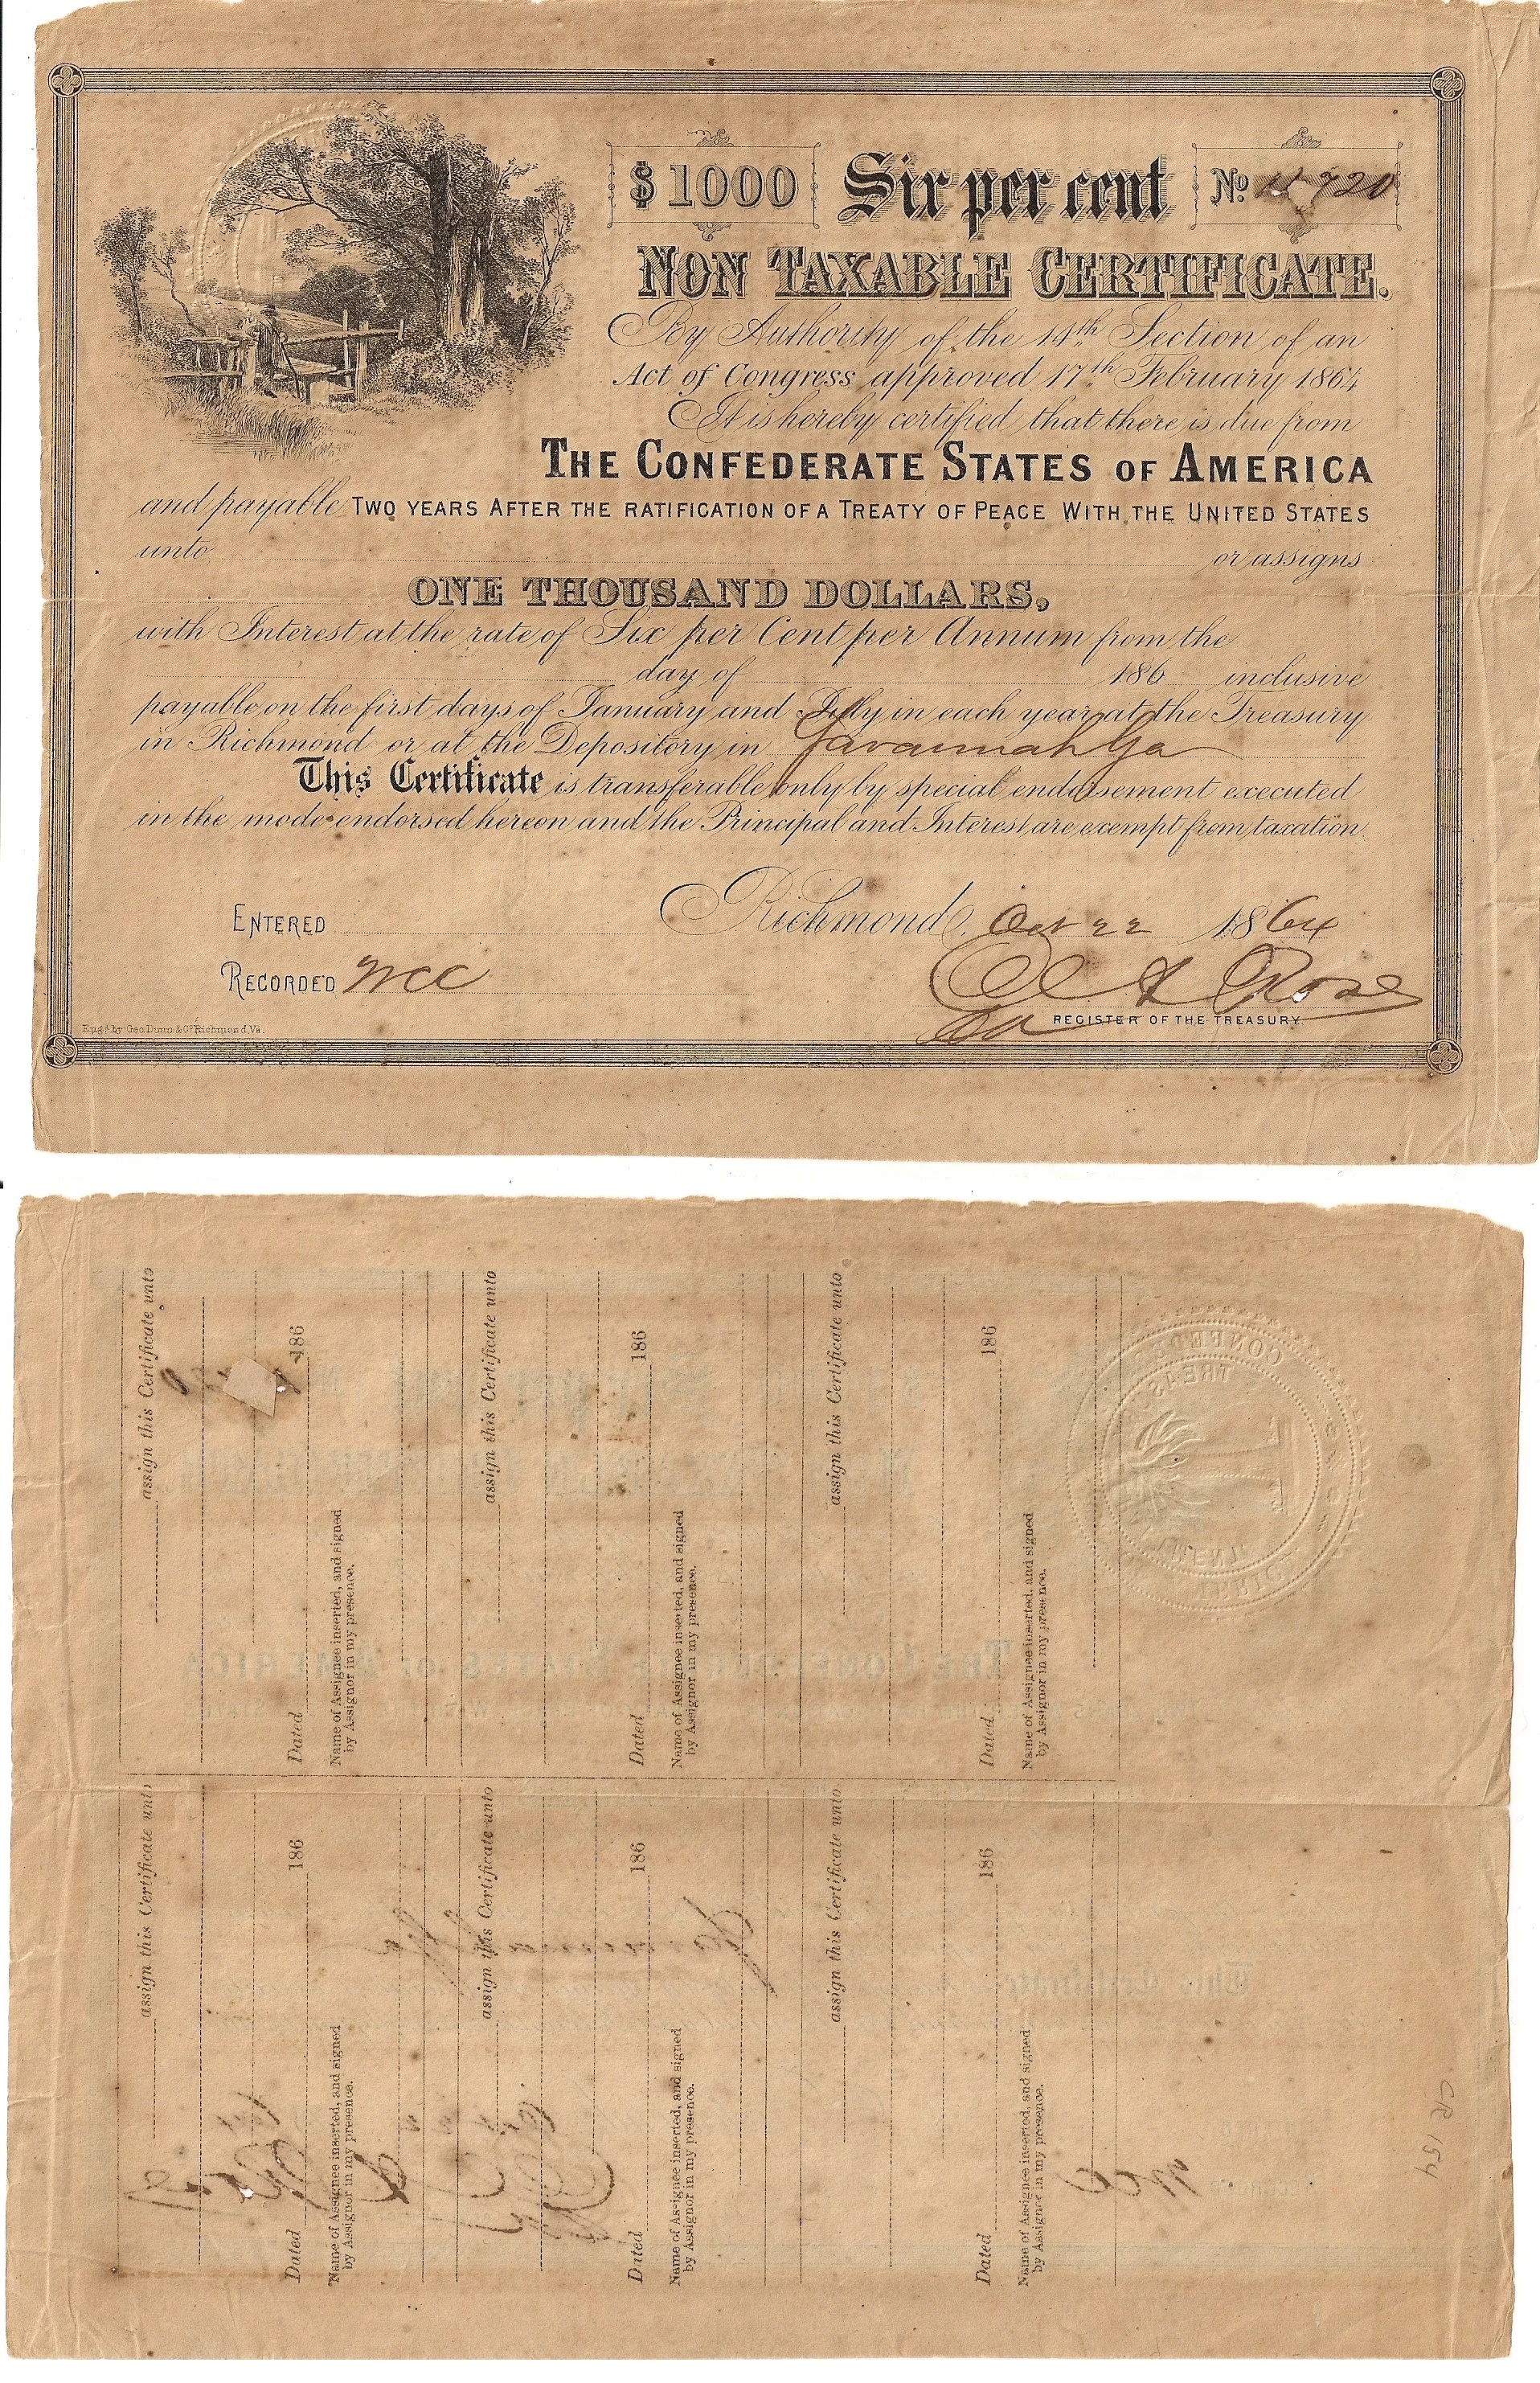 $1000 Six per cent No 11920
NON TAXABLE CERTIFICATE.
By Authority of the 14th Section of an
Act of Congress approved 17th February 1864
It is hereby certified that there is due from
THE CONFEDERATE STATES OF AMERICA
and payable TWO YEARS AFTER THE RATIFICATION OF A TREATY OF PEACE WITH THE UNITED STATES
unto or assigns
ONE THOUSAND DOLLARS,
with Interest at the rate of Six per Cent per Annum from the
day of 186 inclusive
payable on the first days of January and July in each year at the Treasury
in Richmond or at the Depository in Savannah Ga
This Certificate is transferable only by special endorsement executed
in the mode endorsed hereon and the Principal and Interest are exempt from taxation.
ENTERED
Richmond, Oct 22 1864
RECORDED WCC
Rose
REGISTER OF THE TREASURY.
Engd by Geo Dunn & Co Richmond, Va.
assign this Certificate unto
186
Dated
Name of Assignee inserted, and signed
by Assignor in my presence.
assign this Certificate unto
186
Dated
Name of Assignee inserted, and signed
by Assignor in my presence.
assign this Certificate unto
186
Dated
Name of Assignee inserted, and signed
by Assignor in my presence.
assign this Certificate unto
186
Dated
Name of Assignee inserted, and signed
by Assignor in my presence.
assign this Certificate unto
186
Dated
Name of Assignee inserted, and signed
by Assignor in my presence.
assign this Certificate unto
186
Dated
Name of Assignee inserted, and signed
by Assignor in my presence.
CR 154